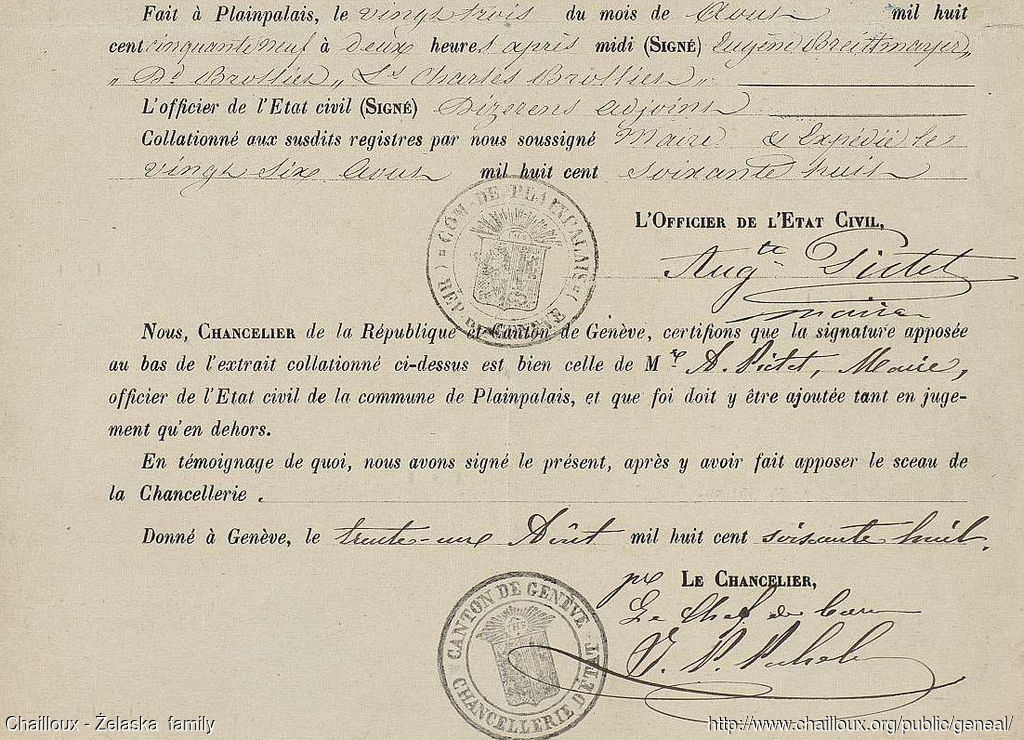 Fait à Plainpalais, le vingt trois du mois de Aout mil huit
cent cinquante neuf à deux heures après midi (SIGNÉ) Eugène Breittmayer,,
,, Dd Brollier,, Ls Charles Brollier,,
L'officier de l'Etat civil (SIGNÉ) Dizerens adjoint
Collationné aux susdits registres par nous soussigné Maire & Expédié le
vingt six Aout mil huit cent soixante huit
COM. DE PLAINPALAIS
RÉP. DE GENÈVE
L'OFFICIER DE L'ETAT CIVIL,
Augte Pictet
maire
Nous, CHANCELIER de la République et Canton de Genève, certifions que la signature apposée
au bas de l'extrait collationné ci-dessus est bien celle de Mr A. Pictet, Maire,
officier de l'Etat civil de la commune de Plainpalais, et que foi doit y être ajoutée tant en juge-
ment qu'en dehors.
En témoignage de quoi, nous avons signé le présent, après y avoir fait apposer le sceau de
la Chancellerie.
Donné à Genève, le trente-un Août mil huit cent soixante huit.
pr LE CHANCELIER,
Le Chef de
CANTON DE GENÈVE
CHANCELLERIE D'ÉTAT
Chailloux - Želaska family
http://www.chailloux.org/public/geneal/